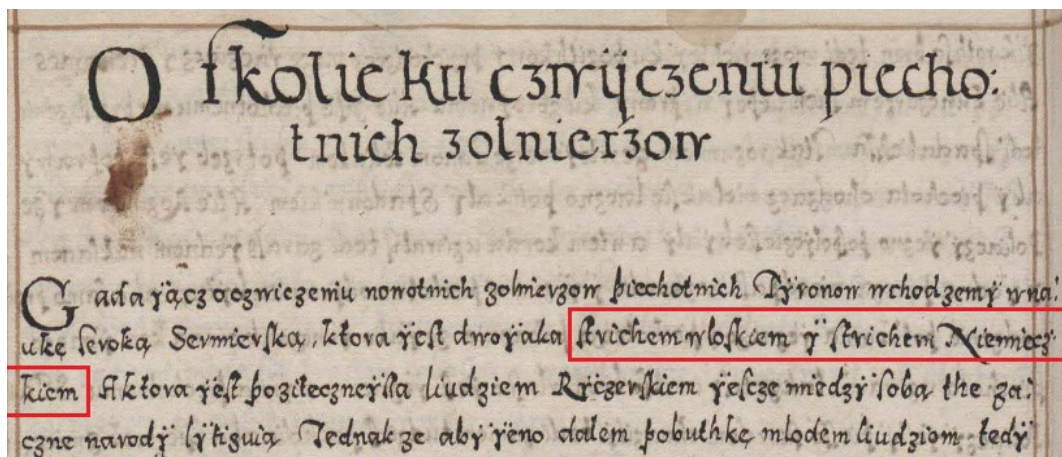 O skolie ku czwÿczeniu piecho:
tnich zolnierzow
Gadaÿącz o czwiczeniu nowotnich zolnierzow piechotnich Tÿronow wchodzemÿ w na:
ukę seroką Sermierską, ktora ÿest dwoÿaka strichem wloskiem ÿ strichem Niemiecz:
kiem Aktora ÿest pozitecznieÿsa liudziem Rÿczerskiem ÿescze miedzÿ sobą the za:
czne narodÿ lÿtiguią Jednakze abÿ ÿeno dalem pobuthkę mlodem liudziom tedÿ